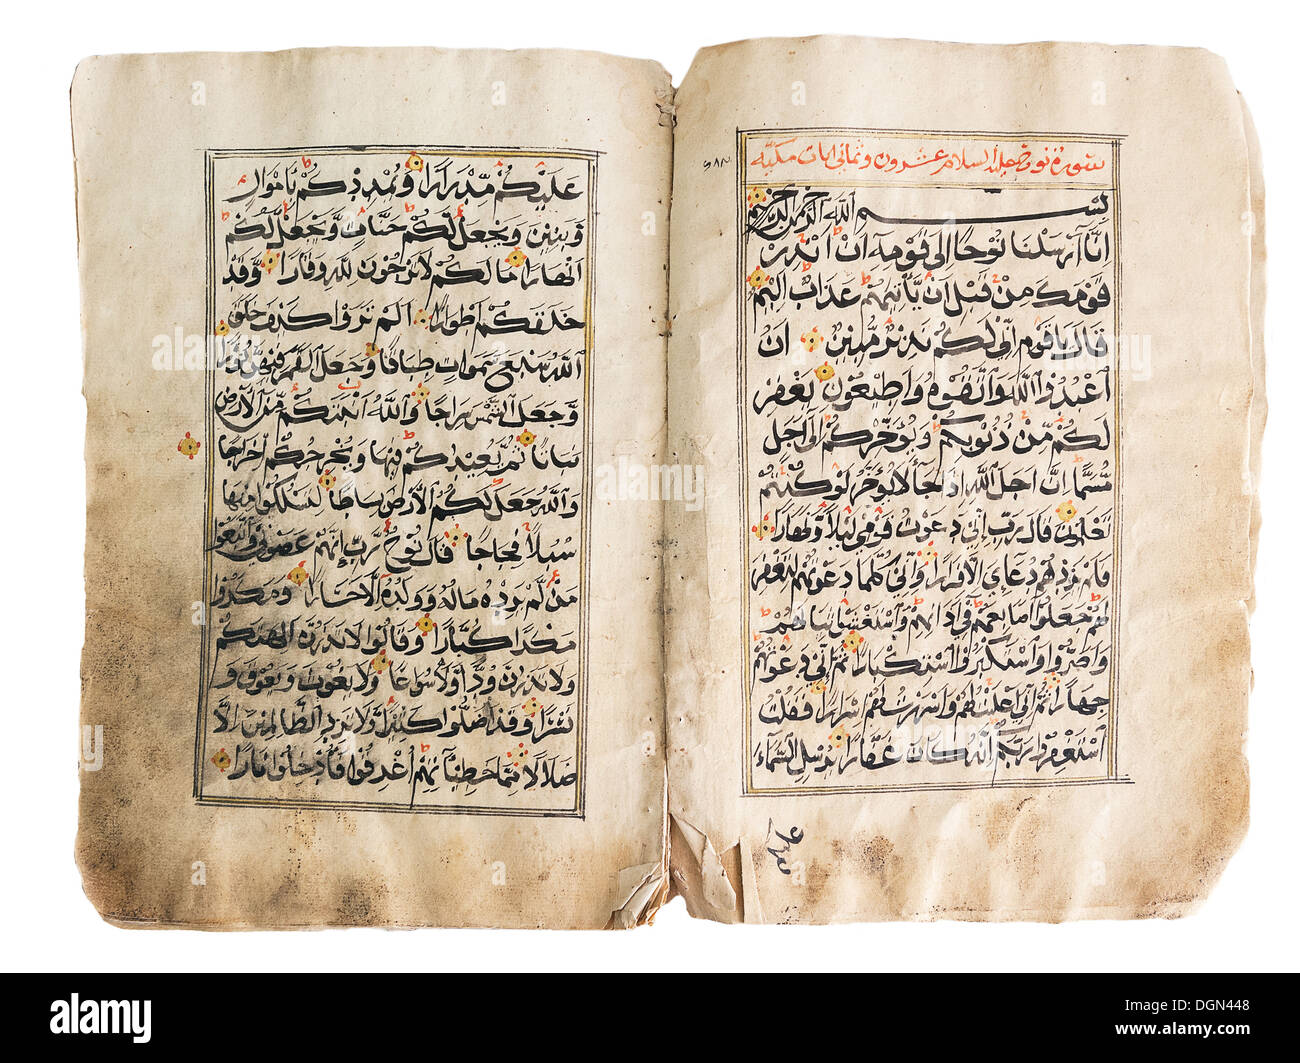 سورة نوح عليه السلام عشرون وثماني ايات مكية
بسم الله الرحمن الرحيم
إنا أرسلنا نوحا إلى قومه أن أنذر
قومك من قبل أن يأتيهم عذاب أليم
قال يا قوم إني لكم نذير مبين أن
اعبدوا الله واتقوه وأطيعون يغفر
لكم من ذنوبكم ويؤخركم إلى أجل
مسما إن أجل الله إذا جاء لا يؤخر لو كنتم
تعلمون قال رب إني دعوت قومي ليلا ونهارا
فلم يزدهم دعاءي إلا فرارا وإني كلما دعوتهم لتغفر
لهم جعلوا أصابعهم في آذانهم واستغشوا ثيابهم
وأصروا واستكبروا استكبارا ثم إني دعوتهم
جهارا ثم إني أعلنت لهم وأسررت لهم إسرارا فقلت
استغفروا ربكم إنه كان غفارا يرسل السماء
عليكم مدرارا ويمددكم بأموال
وبنين ويجعل لكم جنات ويجعل لكم
أنهارا ما لكم لا ترجون لله وقارا وقد
خلقكم أطوارا ألم تروا كيف خلق
الله سبع سموات طباقا وجعل القمر فيهن نورا
وجعل الشمس سراجا والله أنبتكم من الأرض
نباتا ثم يعيدكم فيها ويخرجكم إخراجا
والله جعل لكم الأرض بساطا لتسلكوا منها
سبلا فجاجا قال نوح رب إنهم عصوني واتبعوا
من لم يزده ماله وولده إلا خسارا ومكروا
مكرا كبارا وقالوا لا تذرن آلهتكم
ولا تذرن ودا ولا سواعا ولا يغوث ويعوق و
نسرا وقد أضلوا كثيرا ولا تزد الظالمين إلا
ضلالا مما خطيئاتهم أغرقوا فأدخلوا نارا
alamy
Image ID: DGN448
www.alamy.com